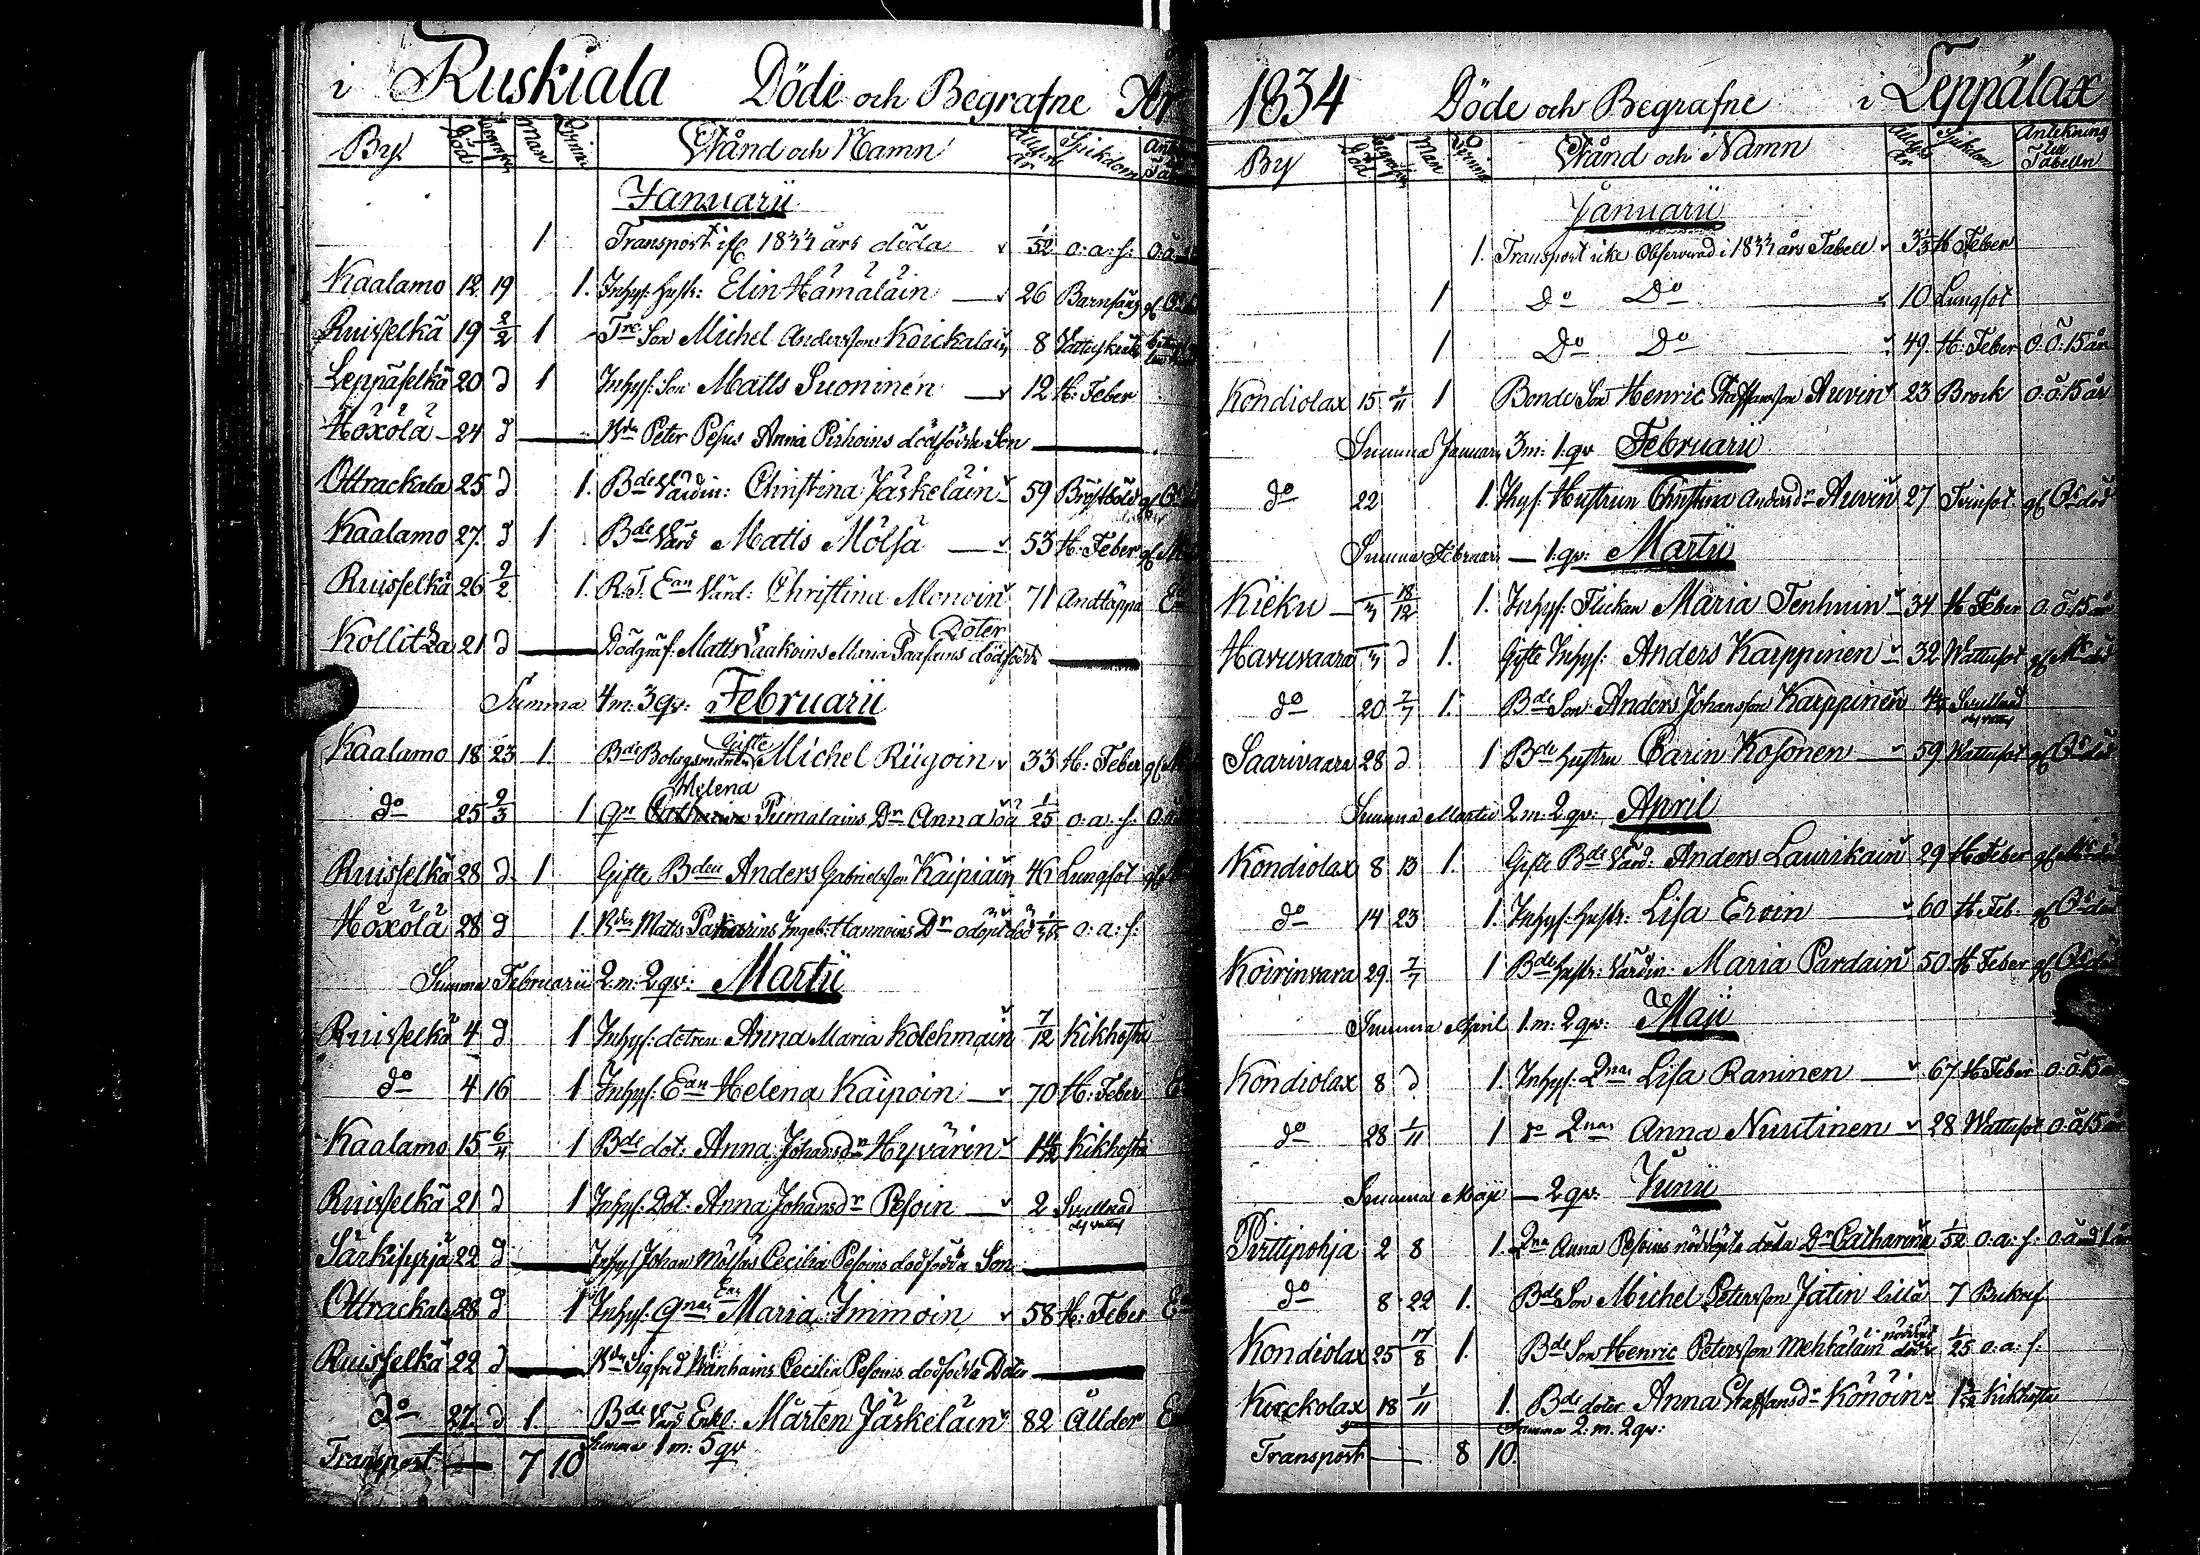 i Ruskiala Döde och Begrafne År
By Död Begrafn Man Qvinn Stånd och Namn Ålder år Sjukdom
Januarii
1 Transport ifr 1833 års döda 1/52 o: a: f:
Kaalamo 12 19 1. Inhys: hustr: Elin Hämäläin 26 Barnsäng
Ruisselkä 19 2/2 1 Son Michel Anderssson Koickalain 8
Leppäselkä 20 d 1 Inhys: Son Matts Suoninen 12 H: Feber
Höxölä 24 d Bde Peter Pesus Anna Pirhoins dödfödde Son
Ottrackala 25 d 1. Bde Värdin: Christina Jäskeläin 59
Kaalamo 27. d 1 Bde Värd Matts Mölsä 53 H: Feber
Ruisselkä 26 2/2 1. R: T: Ean Värd: Christina Monoin 71 Andtäppa
Kollitza 21 d Matts Laakoins Maria Paasains dödfödde Doter
Summa 4 m: 3 qv: Februarii
Kaalamo 18 23 1. Bde Bolagsmannen Gifte Michel Riigoin 33 H: Feber
do 25 2/3 1 Helena Pumalains Dr Anna 1/25 o: a: f:
Ruisselkä 28 d 1. Gifte Bden Anders Gabrielsson Kaipiain 46 Lungsot
Höxölä 28 d 1. Bden Matts Pakarins Ingeb: Hannoins Dr odöpt död o: a: f:
Summa Februarii 2 m: 2 qv: Martii
Ruisselkä 4 d 1 Inhys: dotren Anna Maria Kolehmain 7/12 Kikhosta
do 4 16 1 Inhys: Ean Helena Kaipoin 70 H: Feber
Kaalamo 15 6/4 1 Bde dot: Anna Johansdr Hyvärin Kikhosta
Ruisselkä 21 d 1 Inhys: Dot: Anna Johansdr Pesoin 2 Svullnad
Särkisyrjä 22 d Inhys Johan Mölsäs Cecilia Pesoins dödfödda Son
Ottrackala 28 d 1 Inhys: Ean Maria Immoin 58 H: Feber
Ruisselkä 22 d Bde Sigfred Wänhains Cecilia Pesoins dödfödda Doter
do 27 d 1. Bde Värd Enkl: Mårten Jäskeläin 82 Ålder
Transport 7 10 Summa 1 m: 5 qv
1834 Döde och Begrafne i Leppälax
By Död Begrafn Man Qvinn Stånd och Namn Ålder År Sjukdom Antekning till Tabelln
Januarii
1. Transport icke Observerad i 1833 års Tabell H Feber
1 Do Do 10 Lungsot
1 Do Do 49 H: Feber o: ö: 15 år
Kondiolax 15 1/11 1 Bonde Son Henric Staffansson Auvin 23 Brock o: ö: 15 år
Summa Januarii 3 m: 1. qv Februarii
do 22 1. Inhys: Hustrun Christina Andersdr Auvin 27
Summa Februarii — 1. qv: Martii
Kieku 18/12 1. Inhys: Flickan Maria Tenhuin 34 H Feber o: ö: 15 år
Havuvaara d 1. Gifte Inhys: Anders Karppinen 32 Wattusot
do 20 7/7 1. Bde Son: Anders Johansson Karppinen Svullnad
Saarivaara 28 d 1 Bde hustru Carin Kosonen 59 Wattusot
Summa Martii 2 m: 2 qv: April
Kondiolax 8 13 1. Gifte Bde Värd: Anders Laurikain 29 H Feber
do 14 23 1. Inhys: hustr: Lisa Ervin 60 H Feb.
Koirinvara 29. 7/7 1 Bde hustr: Värdin: Maria Pardain 50 H Feber
Summa April 1. m: 2 qv: Maji
Kondiolax 8 d 1. Inhys: Qnas Lisa Raninen 67 H Feber o: ö: 15 år
do 28 1/11 1 do Qnas Anna Nuutinen 28 Wattusot o: ö: 15 år
Summa Maji — 2 qv: Junii
Pirttipohja 2 8 1. Qna Anna Pesoins nöddöpta döda Dr Catharina 1/52 o: a: f:
do 8 22 1. Bde Son Michel Petersson Jätin 7
Kondiolax 25 17/8 1. Bde Son Henric Petersson Mehtäläin 1/25 o: a: f:
Korckolax 18 1/11 1. Bde doter Anna Staffansdr Konoin Kikhosta
Summa 2: m. 2 qv:
Transport 8 10.